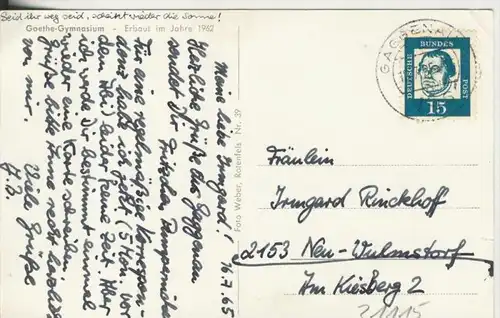 Seid Ihr weg seid, scheint wieder die Sonne!
Goethe-Gymnasium - Erbaut im Jahre 1962
Meine liebe Irmgard! 16.7.65
Herzliche Grüße aus Gaggenau
sendet Dir Fritzchen
Für eine regelmäßige Korrespon-
denz habe ich jetzt (5 Wo. vor
dem Abi) leider keine Zeit. Aber
ich werde Dir bestimmt einmal
wieder eine Karte schreiben.
Grüße bitte Anne recht herzlich
von mir. Viele Grüße
Foto Weber, Rotenfels Nr. 39
GAGGENAU
DEUTSCHE BUNDESPOST
15
Fräulein
Irmgard Rinckhoff
2153 Neu-Wulmstorf
Am Kiesberg 2
21115